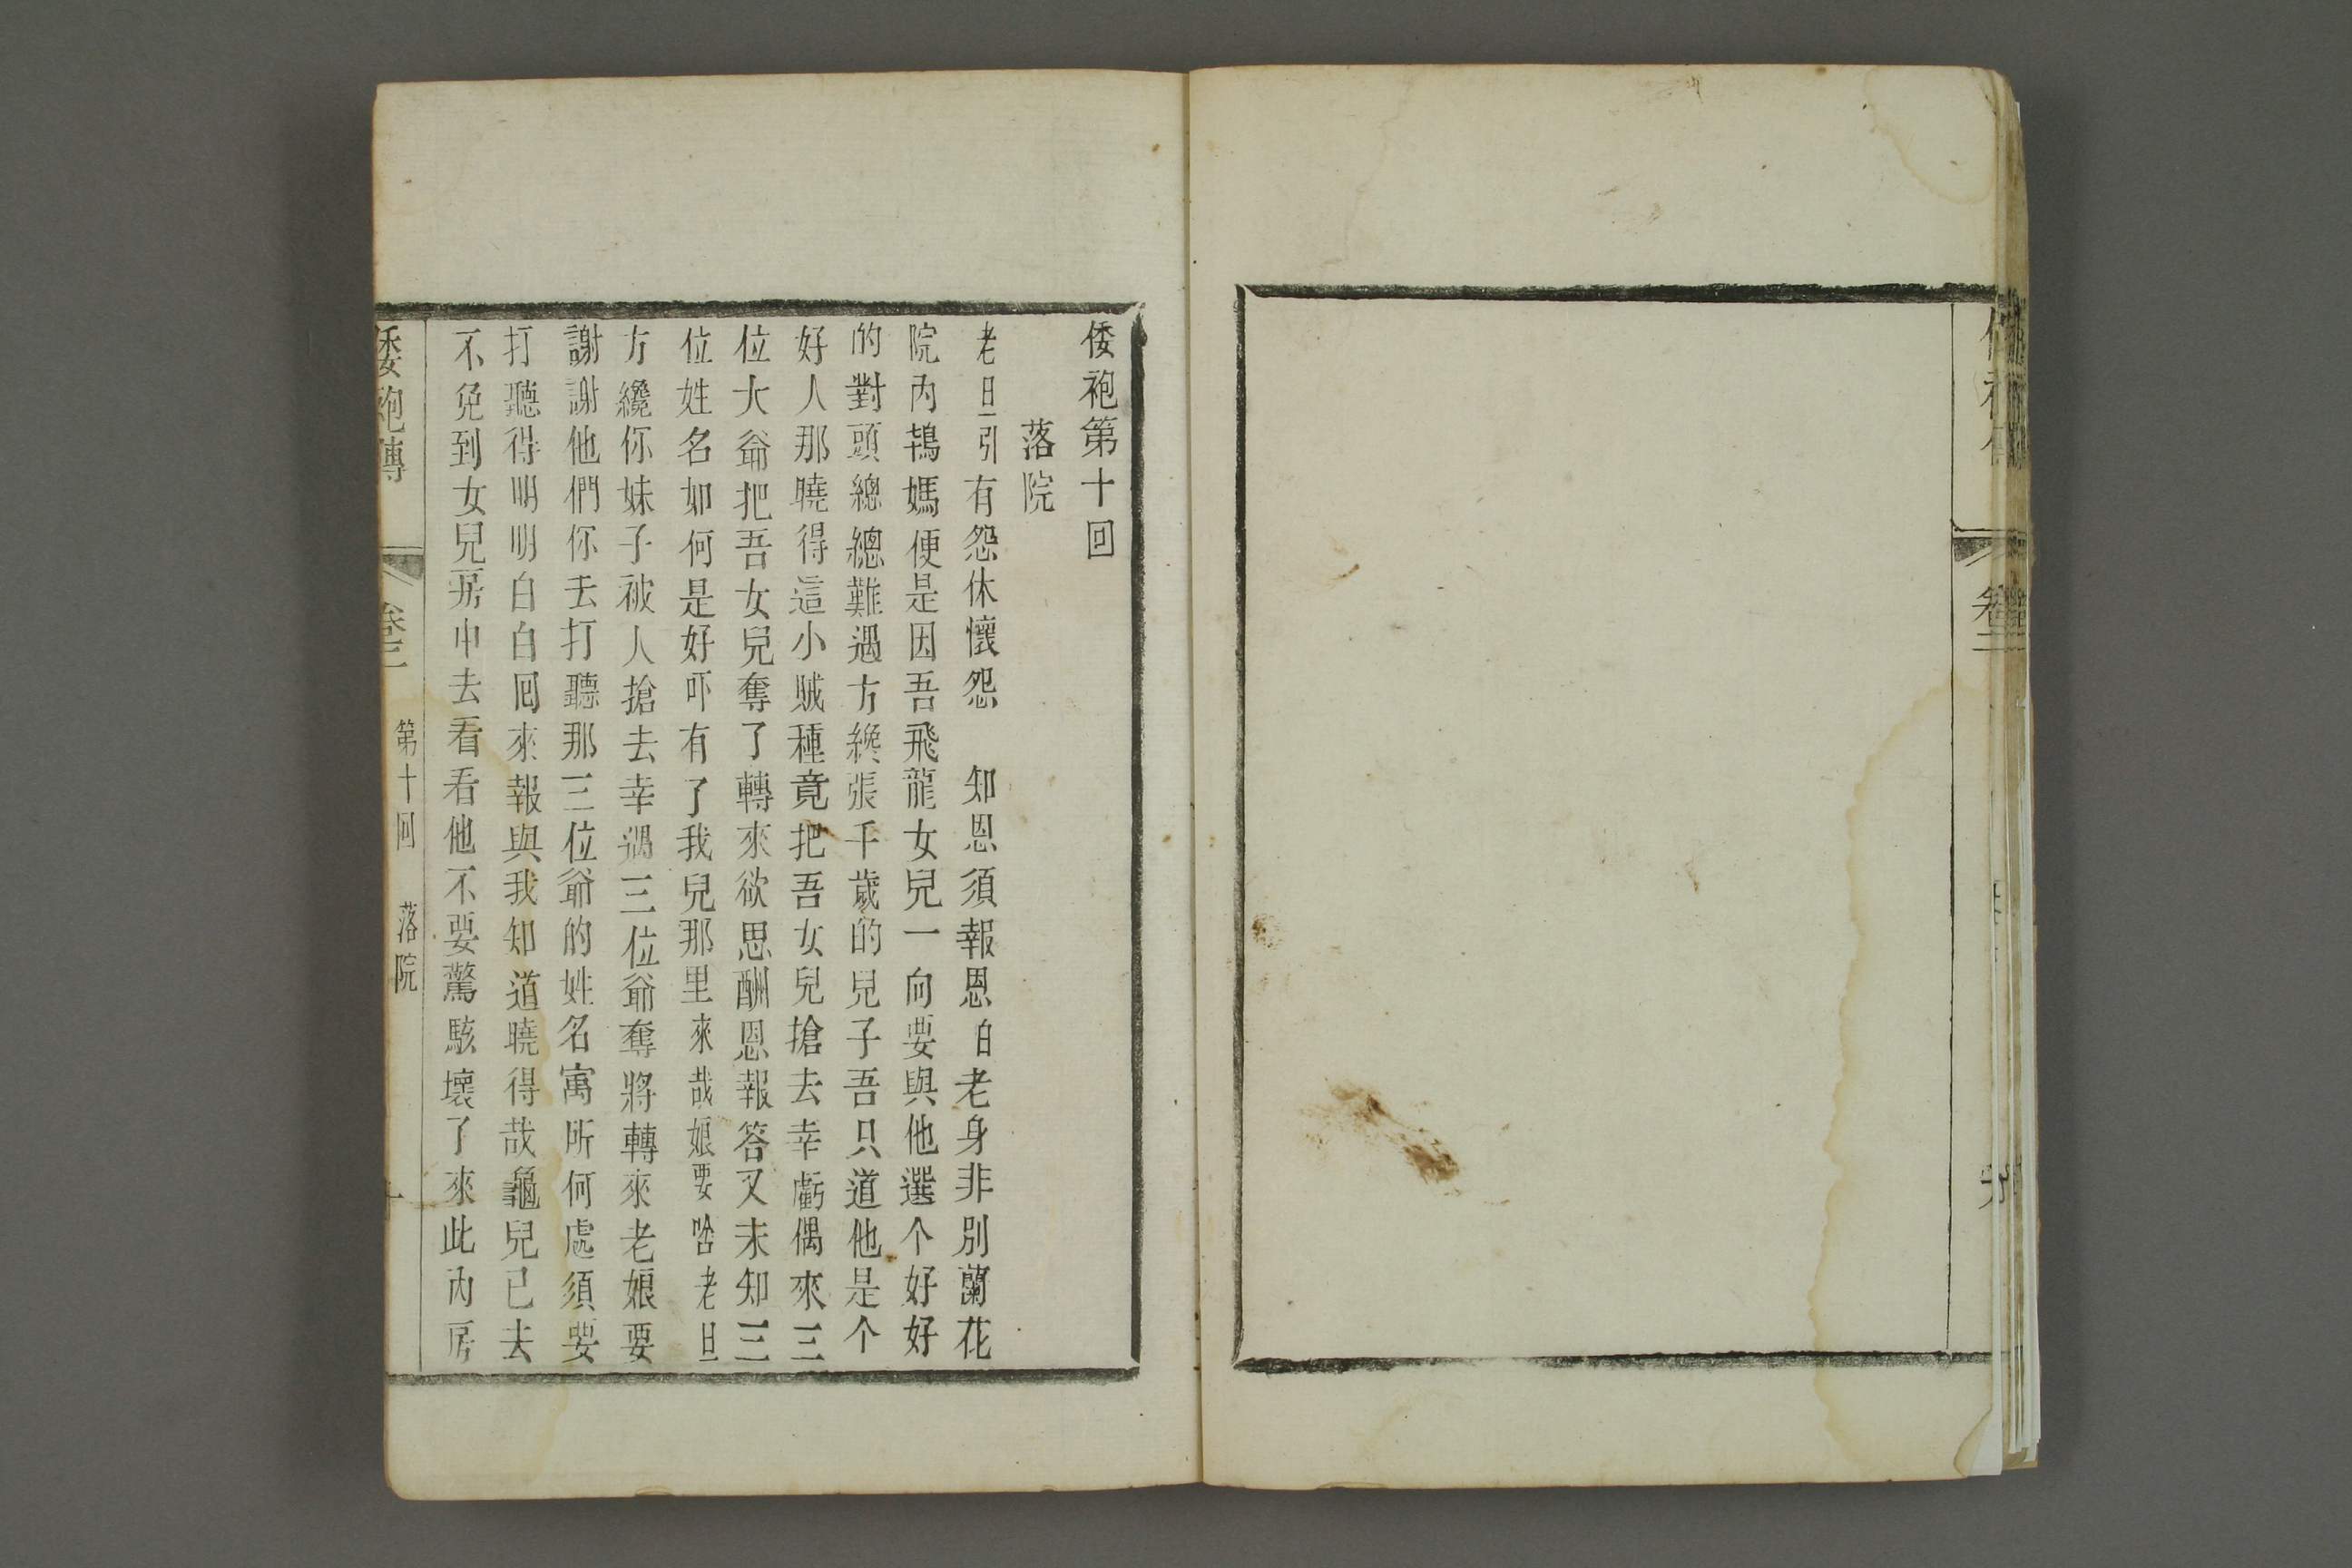 倭袍第十回
落院
老旦引有怨休懷怨　知恩須報恩白老身非別蘭花
院內鴇媽便是因吾飛龍女兒一向要與他選个好好
的對頭總總難遇方纔張千歲的兒子吾只道他是个
好人那曉得這小賊種竟把吾女兒搶去幸虧偶來三
位大爺把吾女兒奪了轉來欲思酬恩報答又未知三
位姓名如何是好吓有了我兒那里來哉娘要啥老旦
方纔你妹子被人搶去幸遇三位爺奪將轉來老娘要
謝謝他們你去打聽那三位爺的姓名寓所何處須要
打聽得明明白白囘來報與我知道曉得哉龜兒已去
不免到女兒房中去看看他不要驚駭壞了來此內房
倭袍傳　卷三　第十回　落院